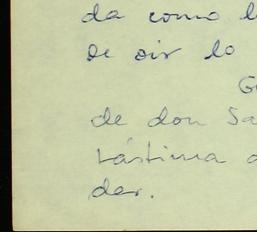 da como l
de oir lo
G
de don Sa
Lástima a
der.